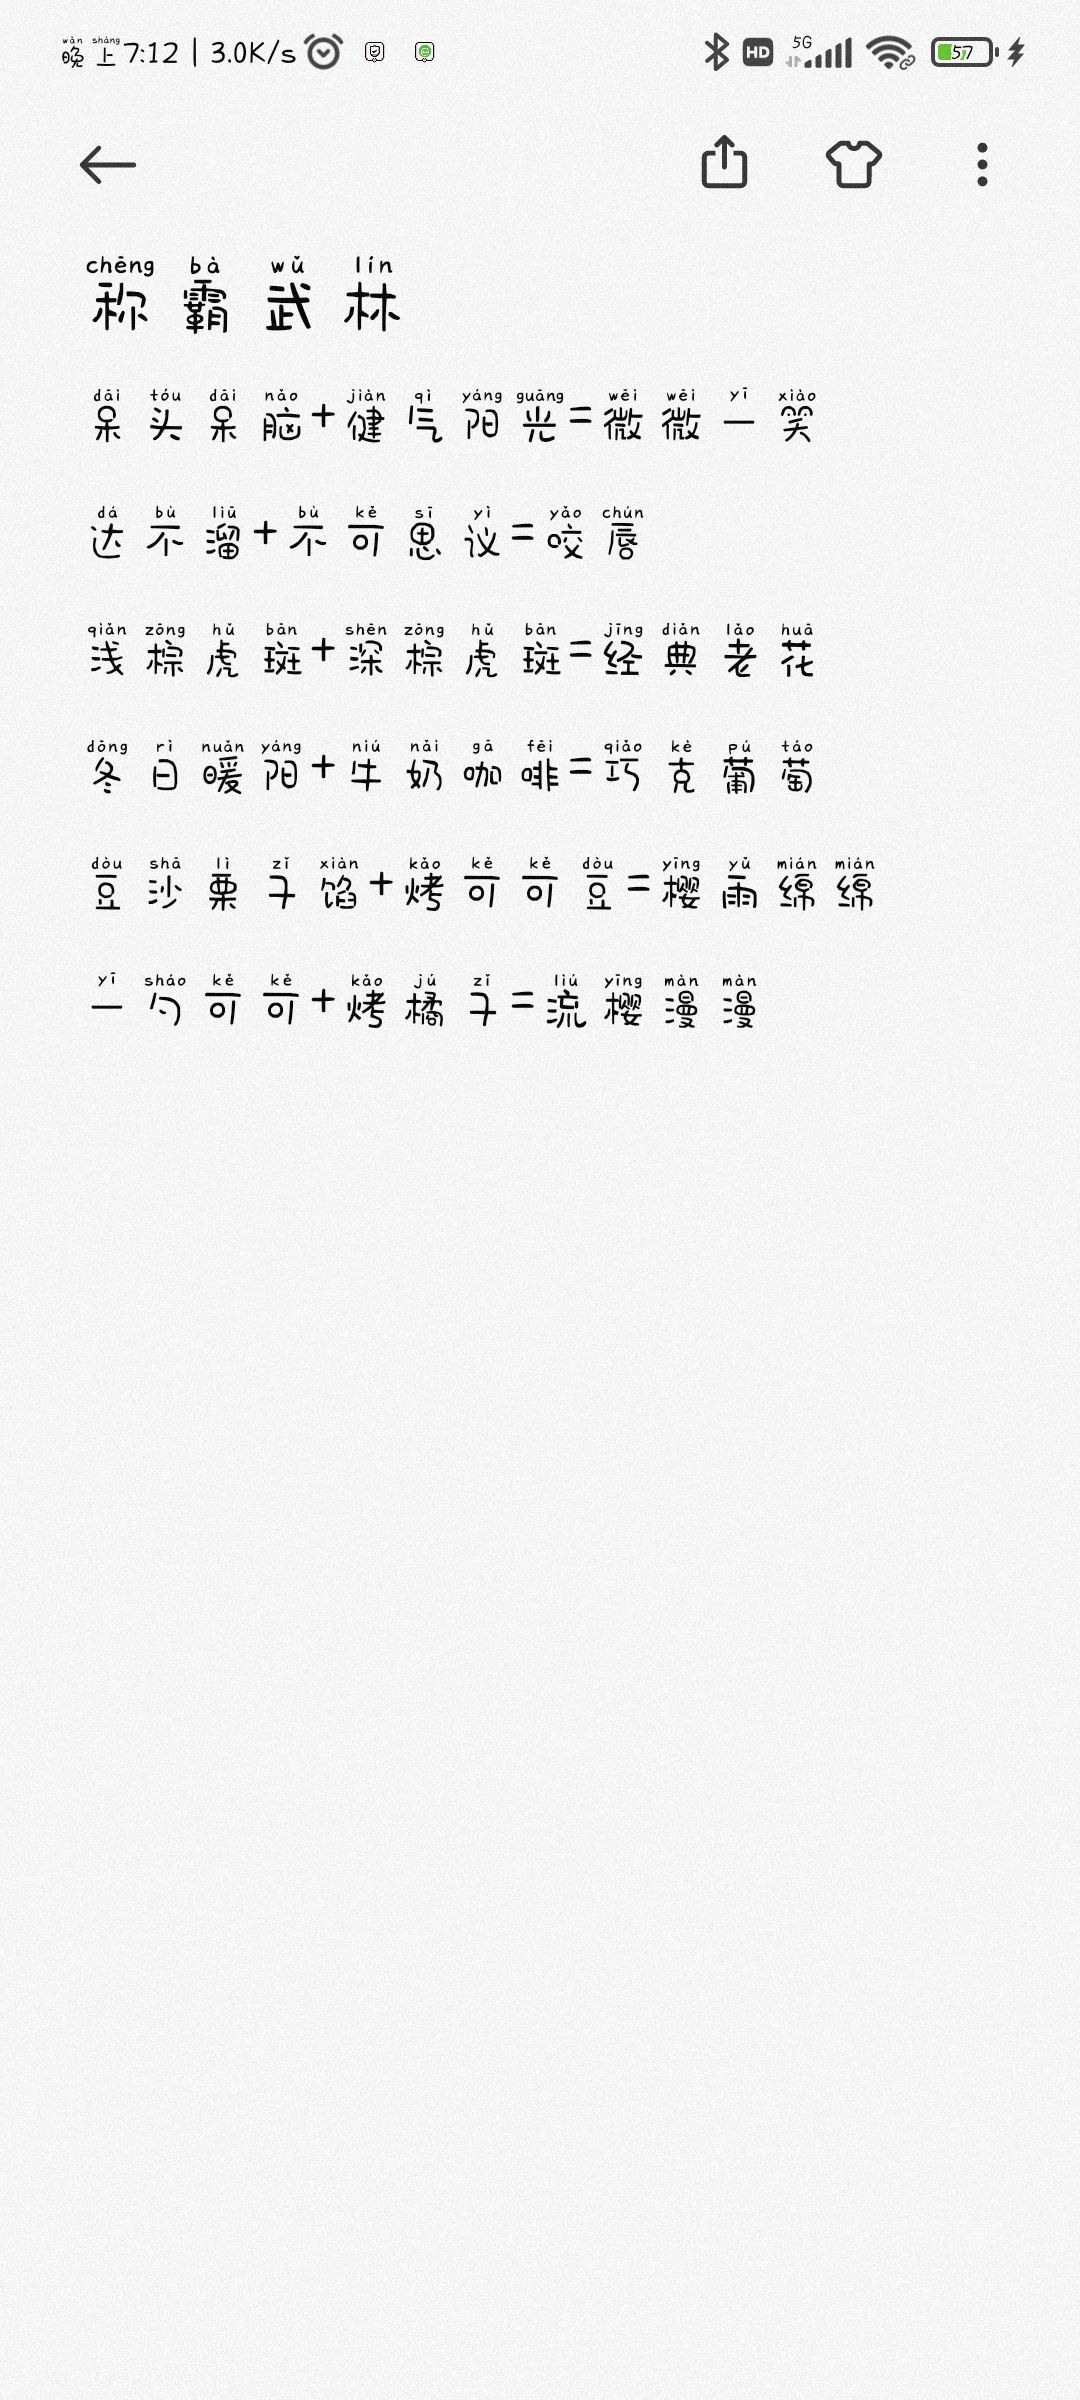 晚上7:12 | 3.0K/s HD 5G 57
chēng bà wǔ lín
称霸武林
dāi tóu dāi nǎo jiàn qì yáng guāng wēi wēi yī xiào
呆头呆脑+健气阳光=微微一笑
dá bù liū bù kě sī yì yǎo chún
达不溜+不可思议=咬唇
qiǎn zōng hǔ bān shēn zōng hǔ bān jīng diǎn lǎo huā
浅棕虎斑+深棕虎斑=经典老花
dōng rì nuǎn yáng niú nǎi gā fēi qiǎo kè pú táo
冬日暖阳+牛奶咖啡=巧克葡萄
dòu shā lì zǐ xiàn kǎo kě kě dòu yīng yǔ mián mián
豆沙栗子馅+烤可可豆=樱雨绵绵
yī sháo kě kě kǎo jú zǐ liú yīng màn màn
一勺可可+烤橘子=流樱漫漫